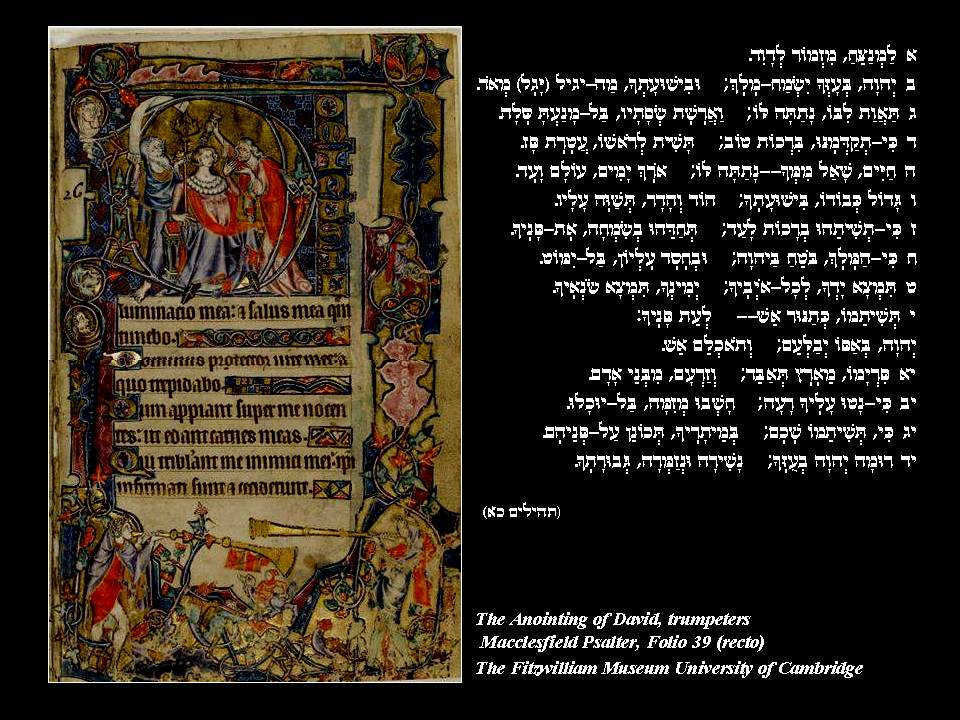 26
luminacio mea: & salus mea quem
timebo.
Dominus protector vite mee: a
quo trepidabo.
Dum appiant super me nocen
tes: ut edant carnes meas.
Qui tribulant me inimici mei: ipsi
infirmati sunt & ceciderunt.
א לַמְנַצֵּחַ, מִזְמוֹר לְדָוִד.
ב יְהוָה, בְּעָזְּךָ יִשְׂמַח-מֶלֶךְ; וּבִישׁוּעָתְךָ, מַה-יגיל (יָּגֶל) מְאֹד.
ג תַּאֲוַת לִבּוֹ, נָתַתָּה לּוֹ; וַאֲרֶשֶׁת שְׂפָתָיו, בַּל-מָנַעְתָּ סֶּלָה.
ד כִּי-תְקַדְּמֶנּוּ, בִּרְכוֹת טוֹב; תָּשִׁית לְרֹאשׁוֹ, עֲטֶרֶת פָּז.
ה חַיִּים, שָׁאַל מִמְּךָ--נָתַתָּה לּוֹ; אֹרֶךְ יָמִים, עוֹלָם וָעֶד.
ו גָּדוֹל כְּבוֹדוֹ, בִּישׁוּעָתֶךָ; הוֹד וְהָדָר, תְּשַׁוֶּה עָלָיו.
ז כִּי-תְשִׁיתֵהוּ בְרָכוֹת לָעַד; תְּחַדֵּהוּ בְשִׂמְחָה, אֶת-פָּנֶיךָ.
ח כִּי-הַמֶּלֶךְ, בֹּטֵחַ בַּיהוָה; וּבְחֶסֶד עֶלְיוֹן, בַּל-יִמּוֹט.
ט תִּמְצָא יָדְךָ, לְכָל-אֹיְבֶיךָ; יְמִינְךָ, תִּמְצָא שֹׂנְאֶיךָ.
י תְּשִׁיתֵמוֹ, כְּתַנּוּר אֵשׁ-- לְעֵת פָּנֶיךָ:
יְהוָה, בְּאַפּוֹ יְבַלְּעֵם; וְתֹאכְלֵם אֵשׁ.
יא פִּרְיָמוֹ, מֵאֶרֶץ תְּאַבֵּד; וְזַרְעָם, מִבְּנֵי אָדָם.
יב כִּי-נָטוּ עָלֶיךָ רָעָה; חָשְׁבוּ מְזִמָּה, בַּל-יוּכָלוּ.
יג כִּי, תְּשִׁיתֵמוֹ שֶׁכֶם; בְּמֵיתָרֶיךָ, תְּכוֹנֵן עַל-פְּנֵיהֶם.
יד רוּמָה יְהוָה בְעֻזֶּךָ; נָשִׁירָה וּנְזַמְּרָה, גְּבוּרָתֶךָ.
(תהילים כא)
The Anointing of David, trumpeters
Macclesfield Psalter, Folio 39 (recto)
The Fitzwilliam Museum University of Cambridge